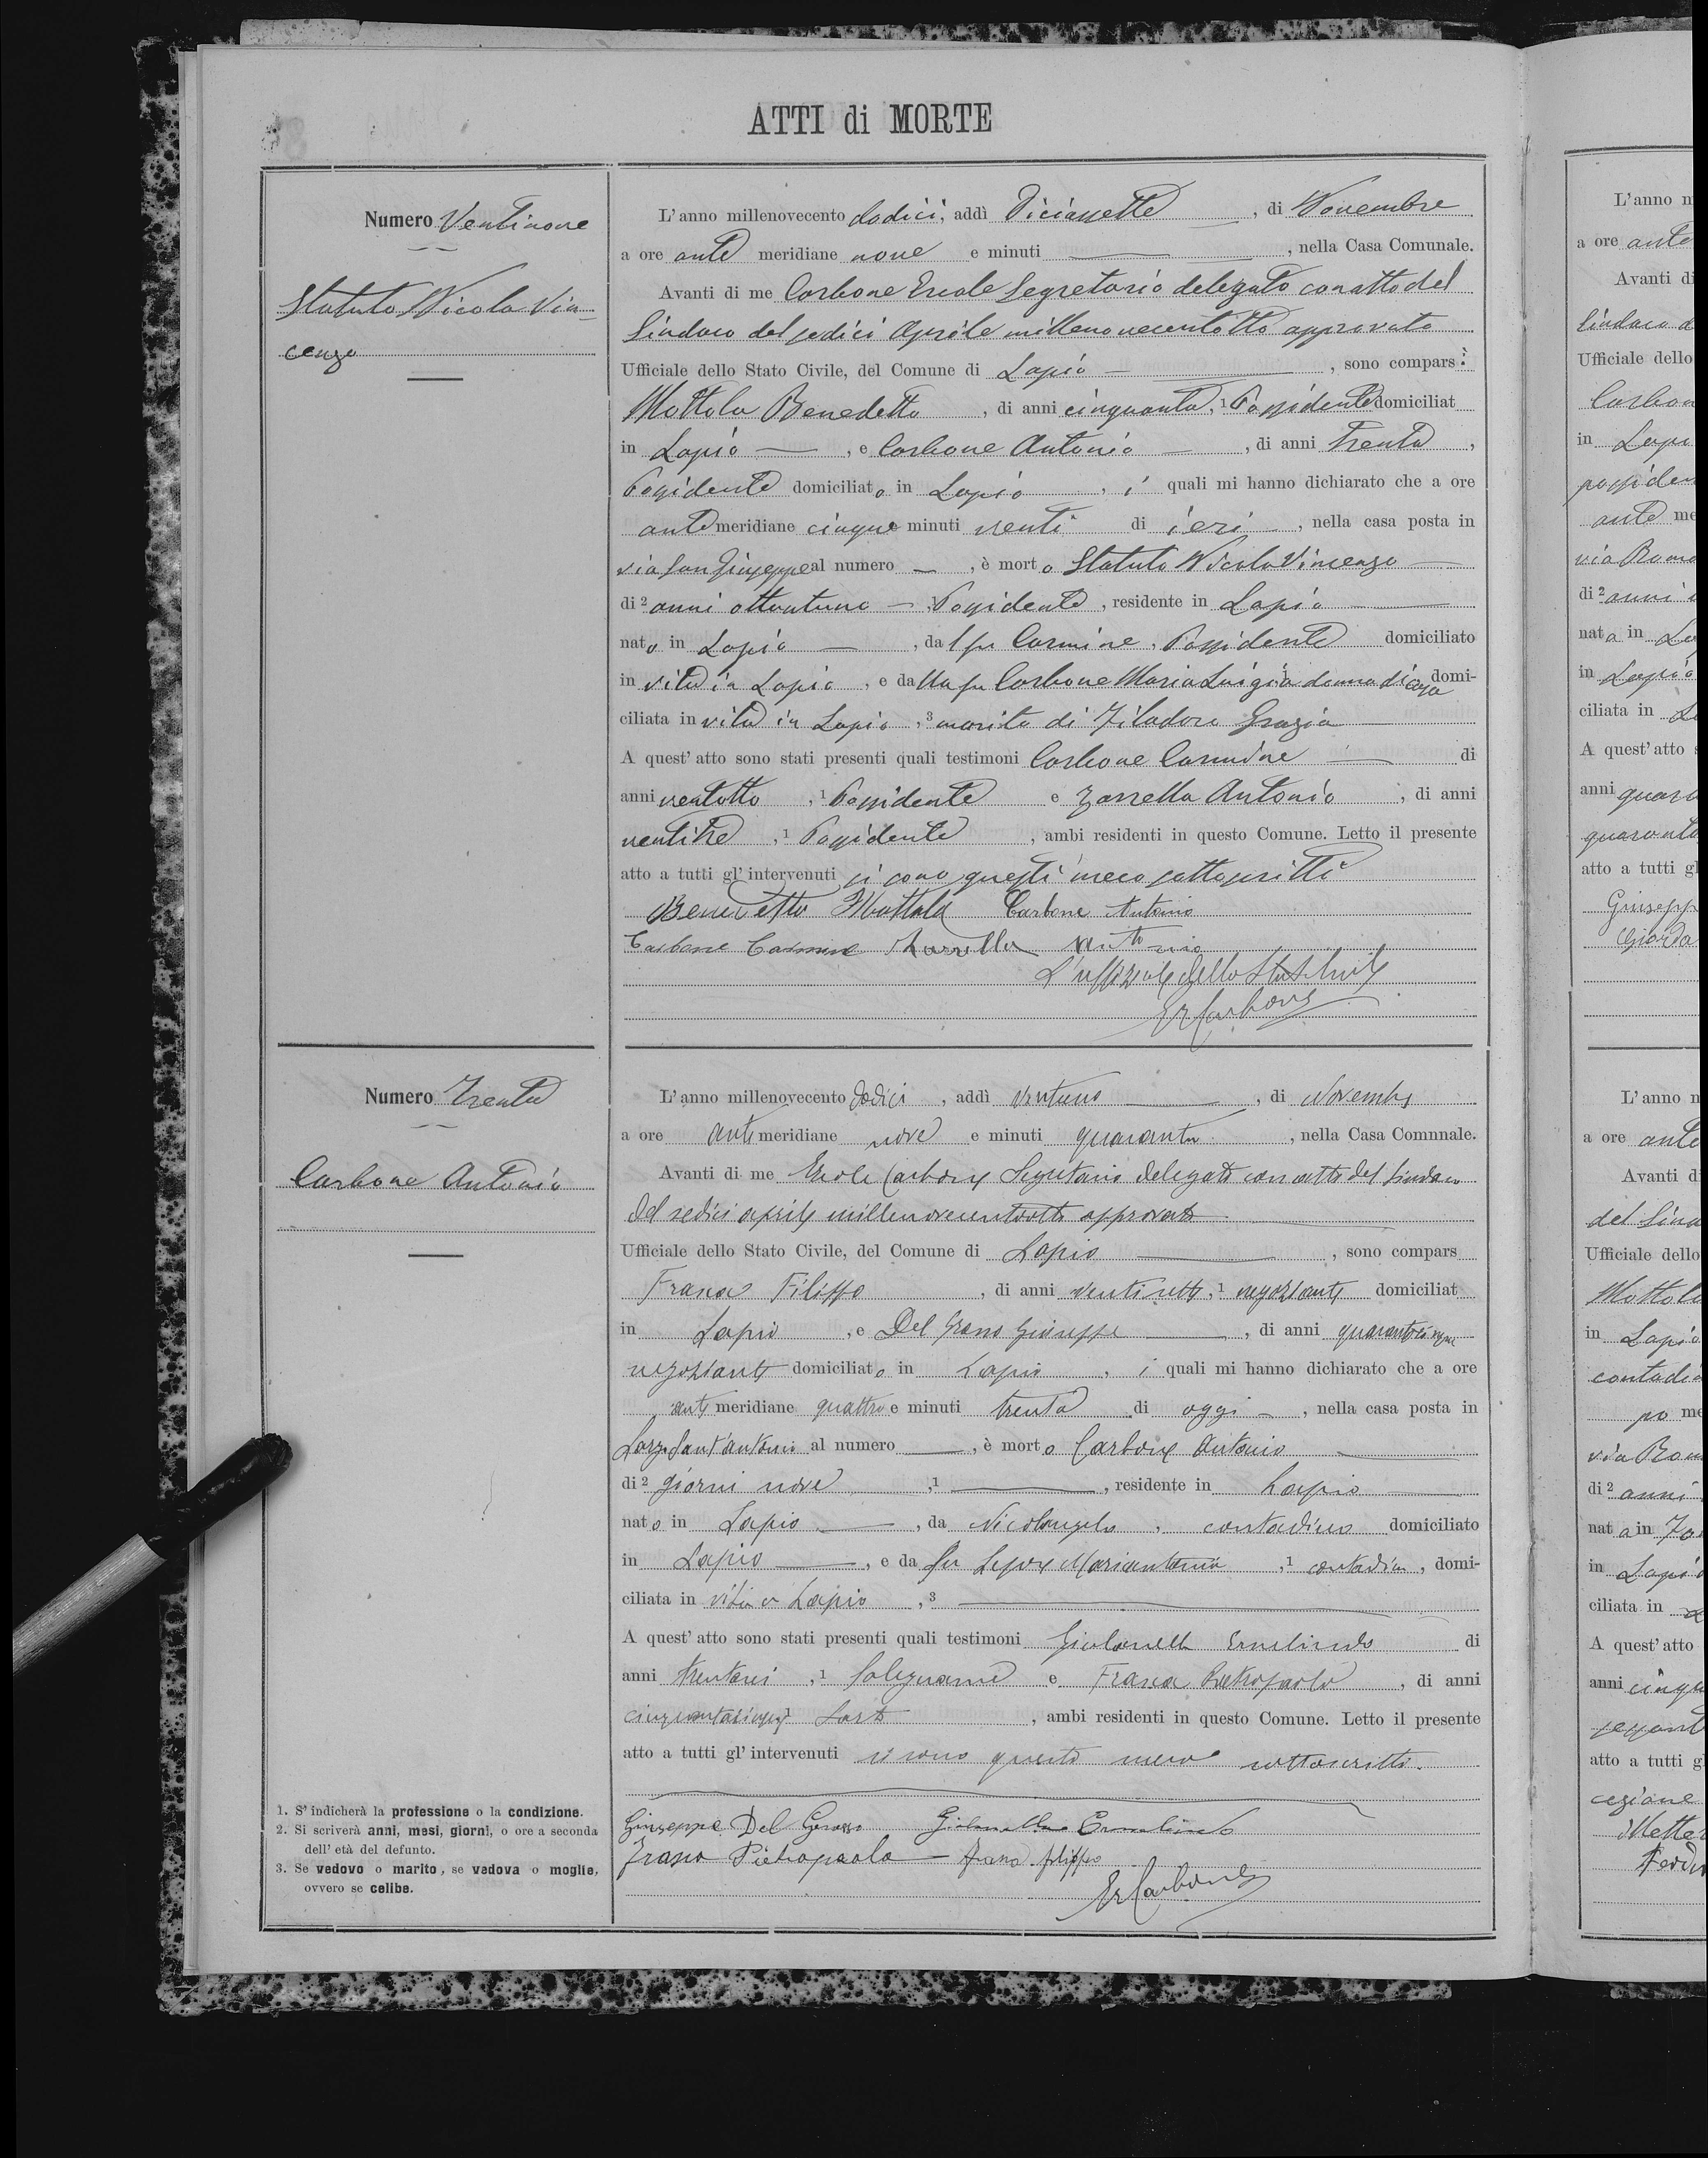 ATTI di MORTE
Numero Ventinove
Statuto Nicola Vin-
cenzo
L'anno millenovecento dodici, addì Diciassette, di Novembre
a ore ante meridiane nove e minuti —, nella Casa Comunale.
Avanti di me Carbone Ercole Segretario delegato con atto del
Sindaco del sedici Aprile millenovecentotto approvato
Ufficiale dello Stato Civile, del Comune di Lapio —, sono compars i:
Mottola Benedetto, di anni cinquanta, 1 Possidente domiciliat
in Lapio —, e Carbone Antonio —, di anni Trenta,
Possidente domiciliato in Lapio, i quali mi hanno dichiarato che a ore
ante meridiane cinque e minuti venti di ieri —, nella casa posta in
via San Giuseppe al numero —, è morto Statuto Nicola Vincenzo —
di 2 anni ottantuno — 1 Possidente, residente in Lapio —
nato in Lapio —, dal fu Carmine, Possidente domiciliato
in vita in Lapio, e dalla fu Carbone Maria Luigia 1 donna di casa domi-
ciliata in vita in Lapio, 3 marito di Filadoro Grazia —
A quest' atto sono stati presenti quali testimoni Carbone Carmine — di
anni ventotto, 1 Possidente e Zarrella Antonio, di anni
ventitre, 1 Possidente, ambi residenti in questo Comune. Letto il presente
atto a tutti gl' intervenuti si sono questi meco sottoscritti
Benedetto Mottola Carbone Antonio
Carbone Carmine Zarrella Antonio
L'uffiziale dello Stato Civile
Er Carbone
Numero Trenta
Carbone Antonio
L'anno millenovecento dodici, addì ventuno —, di Novembre
a ore anti meridiane nove e minuti quaranta, nella Casa Comnnale.
Avanti di me Ercole Carbone Segretario delegato con atto del Sindaco
del sedici aprile millenovecentotto approvato —
Ufficiale dello Stato Civile, del Comune di Lapio —, sono compars
Frasca Filippo, di anni ventisette, 1 negoziante domiciliat
in Lapio, e Del Grosso Giuseppe —, di anni quarantacinque
negoziante domiciliato in Lapio, i quali mi hanno dichiarato che a ore
anti meridiane quattro e minuti trenta di oggi —, nella casa posta in
Largo Sant'Antonio al numero —, è morto Carbone Antonio —
di 2 giorni nove, 1 —, residente in Lapio —
nato in Lapio —, da Nicolangelo, contadino domiciliato
in Lapio —, e da fu Lepore Mariantonia, 1 contadina, domi-
ciliata in vita in Lapio, 3 —
A quest' atto sono stati presenti quali testimoni Ermelindo di
anni trentasei, 1 falegname e Frasca Pietropaolo, di anni
cinquantacinque Sarto, ambi residenti in questo Comune. Letto il presente
atto a tutti gl' intervenuti si sono questi meco sottoscritti.
Giuseppe Del Grosso Ermelindo
Frasca Pietropaolo — Frasca Filippo
Er Carbone
1. S' indicherà la professione o la condizione.
2. Si scriverà anni, mesi, giorni, o ore a seconda
dell' età del defunto.
3. Se vedovo o marito, se vedova o moglie,
ovvero se celibe.
L'anno m
a ore ante
Avanti di
Sindaco d
Ufficiale dello
Carbon
in Lapi
possiden
ante me
via Roma
di 2 anni
nata in La
in Lapio
ciliata in L
A quest' atto s
anni quara
quaranta
atto a tutti gl
Giusepp
Giorda
L'anno m
a ore ante
Avanti d
del Sind
Ufficiale dello
Mottola
in Lapio
contadi
po me
via Rom
di 2 anni
nat a in
in Lapio
ciliata in
A quest' atto
anni cinqu
atto a tutti g
cezione